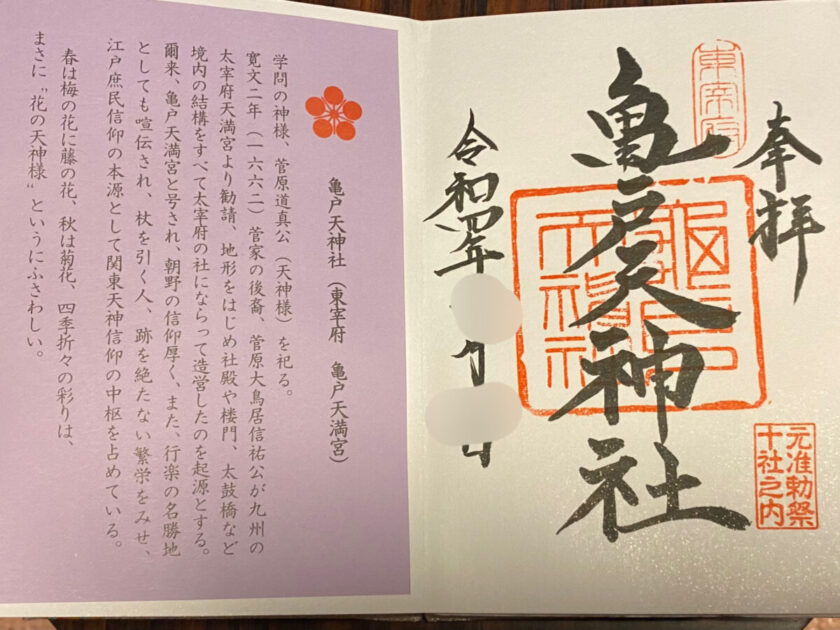 奉拝
東宰府
亀戸天神社
元准勅祭
十社之内
令和四年
月
日
亀戸天神社(東宰府 亀戸天満宮)
学問の神様、菅原道真公(天神様)を祀る。
寛文二年(一六六二)菅家の後裔、菅原大鳥居信祐公が九州の
太宰府天満宮より勧請、地形をはじめ社殿や楼門、太鼓橋など
境内の結構をすべて太宰府の社にならって造営したのを起源とする。
爾来、亀戸天満宮と号され、朝野の信仰厚く、また、行楽の名勝地
としても喧伝され、杖を引く人、跡を絶たない繁栄をみせ、
江戸庶民信仰の本源として関東天神信仰の中枢を占めている。
春は梅の花に藤の花、秋は菊花、四季折々の彩りは、
まさに〝花の天神様〟というにふさわしい。